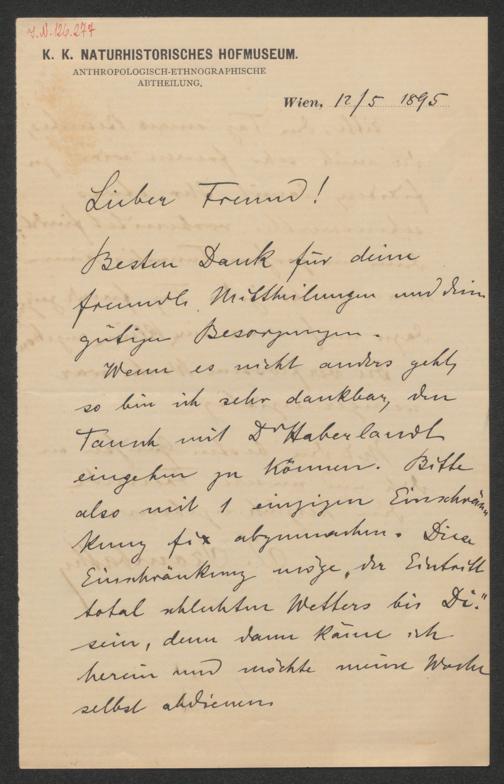 J.N. 126.277
K. K. NATURHISTORISCHES HOFMUSEUM.
ANTHROPOLOGISCH-ETHNOGRAPHISCHE
ABTHEILUNG.
Wien, 12/5 1895
Lieber Freund!
Besten Dank für deine
freundl. Mittheilungen und dein
gütigen Besorgungen.
Wenn es nicht anders geht,
so bin ich sehr dankbar, den
Tausch mit Dr Haberlandt
eingehen zu können. Bitte
also mit 1 einzigen Einschrän-
kung fix abzumachen. Diese
Einschränkung möge „der Eintritt
total schlechten Wetters bis Di."
sein, denn dann käme ich
herein und möchte meine Woche
selbst abdienen